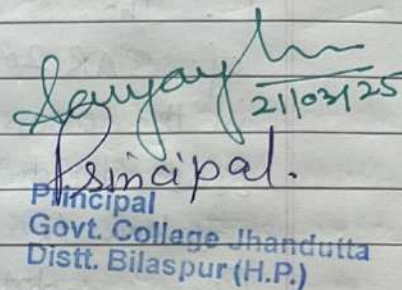 Sanjay
21/03/25
Principal.
Principal
Govt. College Jhandutta
Distt. Bilaspur (H.P.)